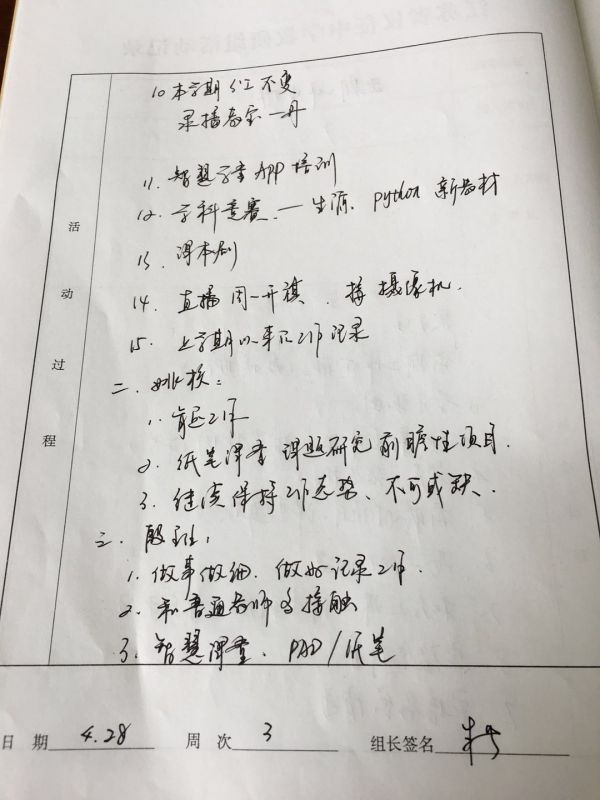 10 本学期分工不变
录播教室一丹
11. 智慧学堂APP培训
12. 学科竞赛.一生源. python 新教材
13. 课本剧
14. 直播周一升旗. 接摄像机.
15. 上学期以来工作记录
二. 姚校:
1. 肯定工作
2. 纸笔课堂 课题研究前瞻性项目.
3. 继续保持工作态势、不可或缺、
三. 殷主任:
1. 做事做细. 做好记录工作.
2. 和普通老师多接触
3. 智慧课堂. PAD/纸笔
活动过程
日 期 4.28 周 次 3 组长签名